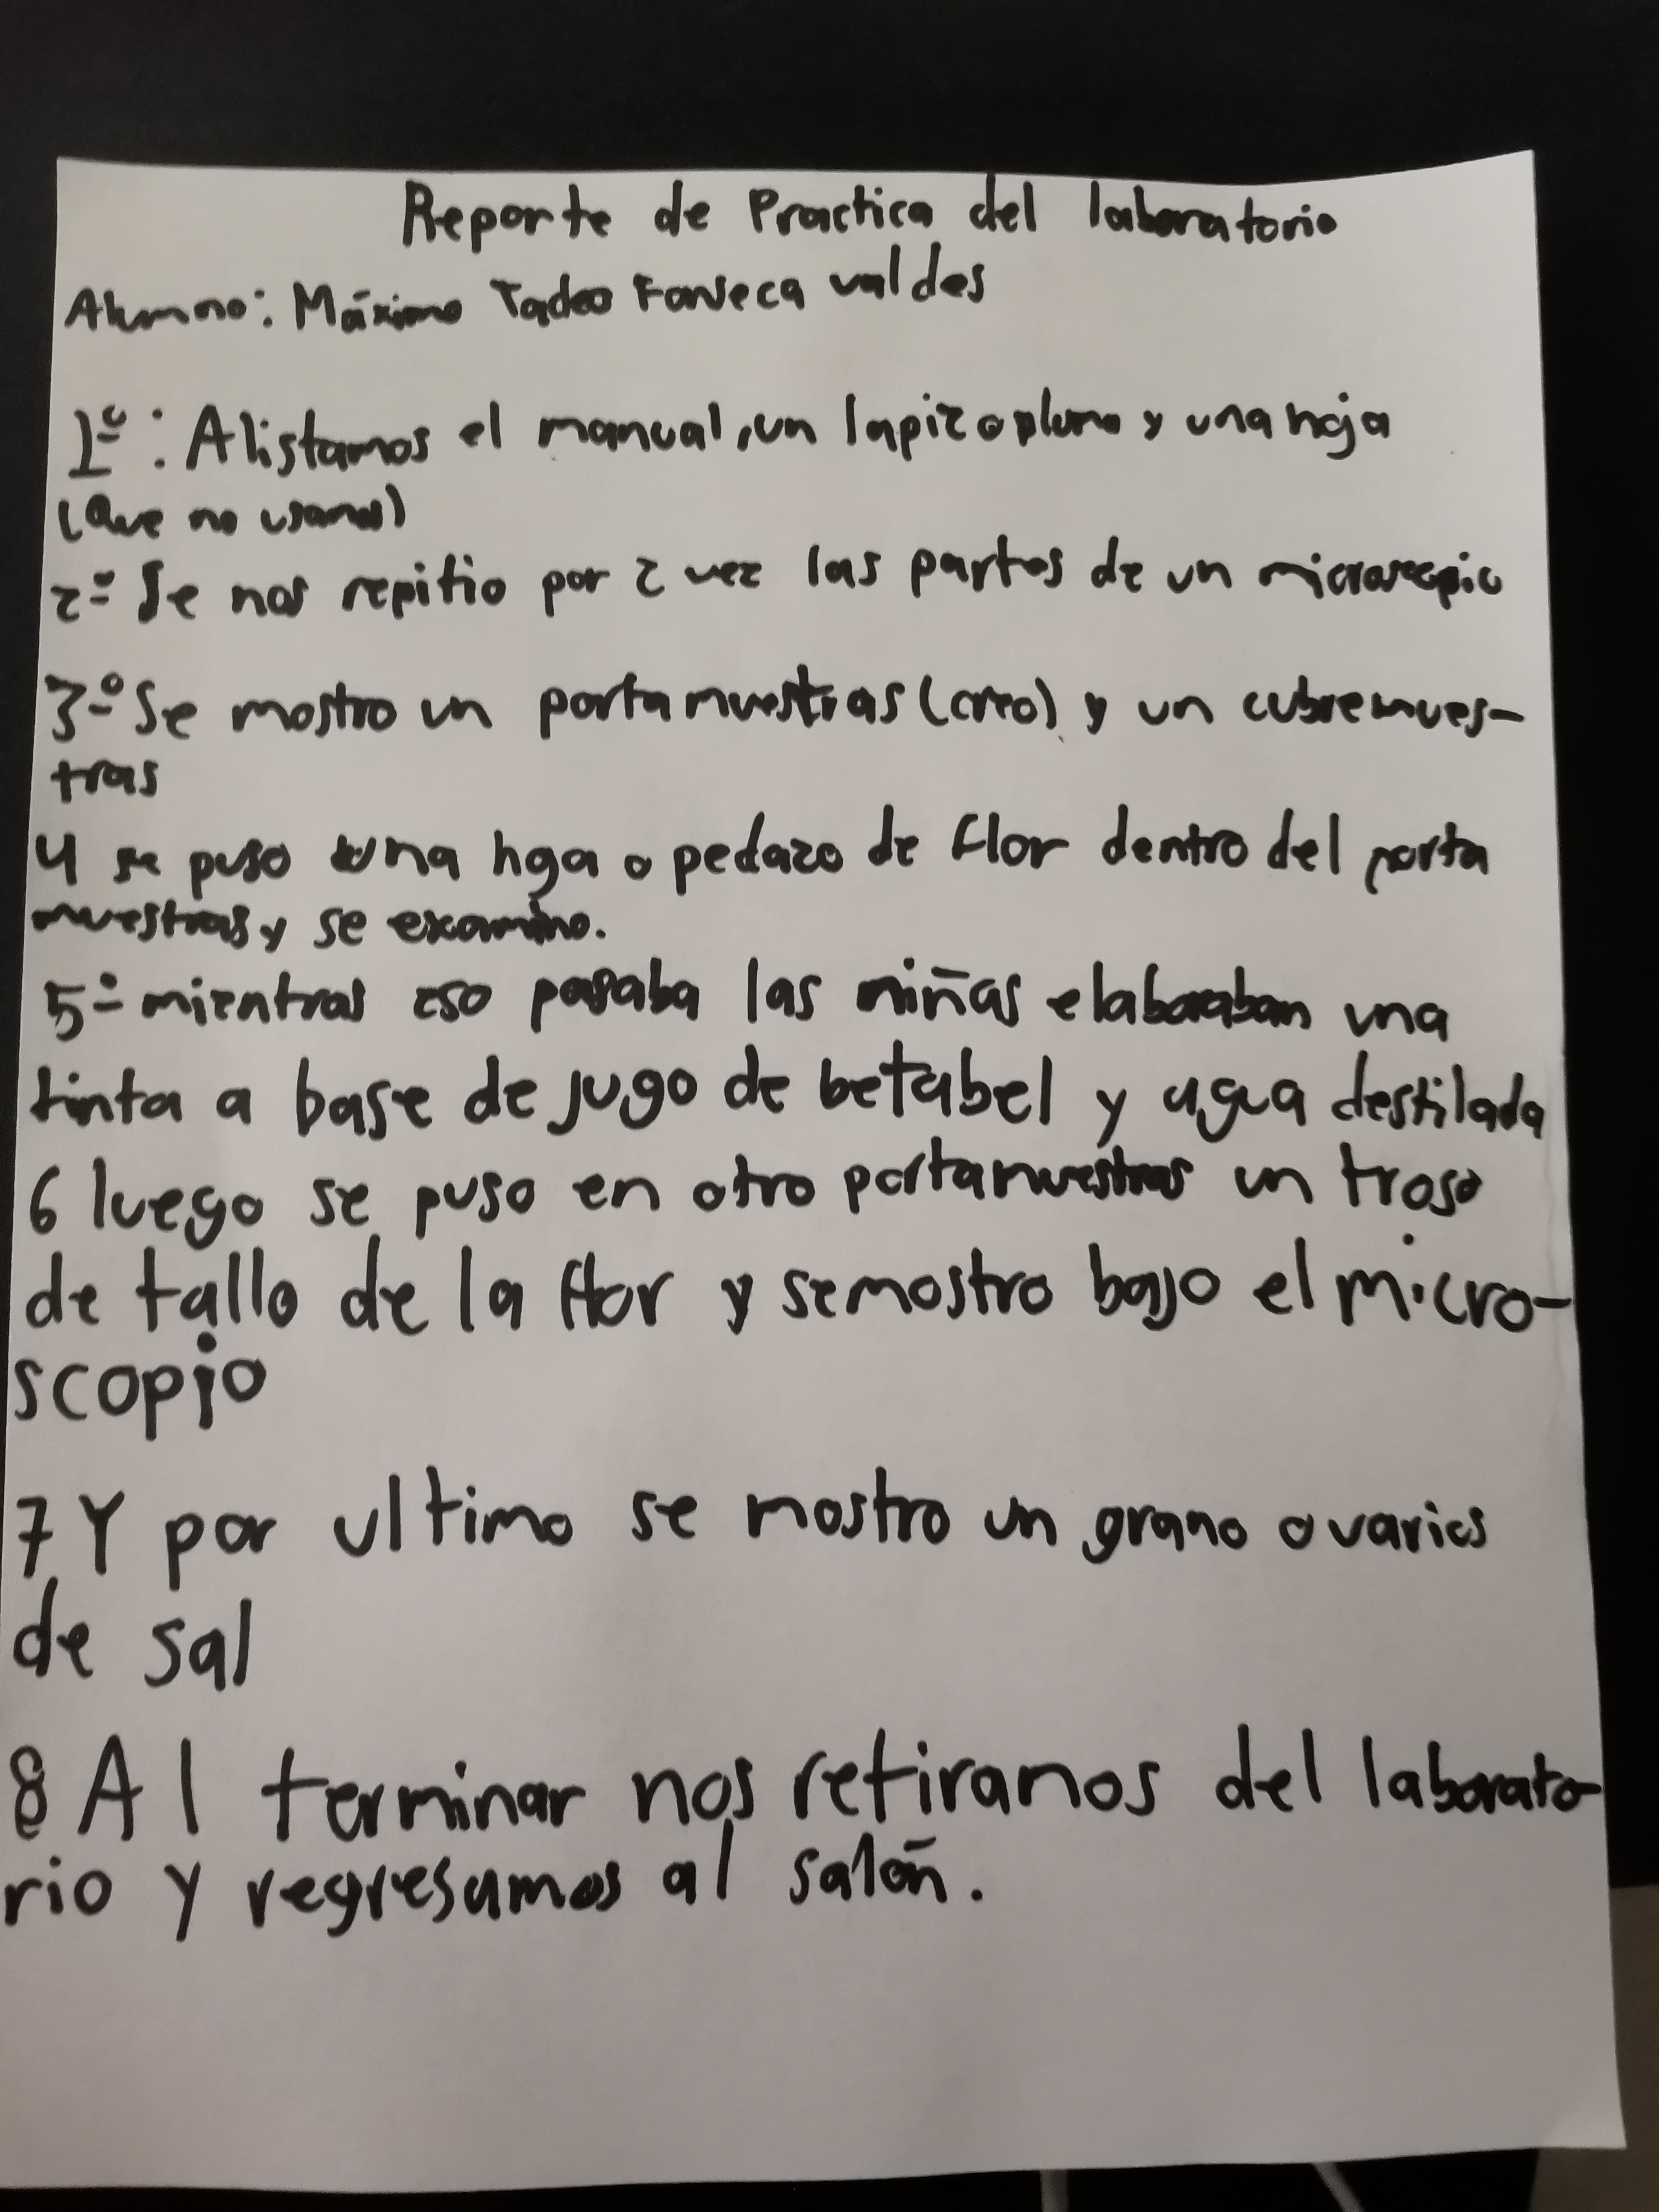 Reporte de Practica del laboratorio
Alumno: Máximo Tadeo Fonseca valdes
1º: Alistamos el manual, un lapiz o pluma y una hoja
(Que no usamos)
2º Se nos repitio por 2 vez las partes de un microscopio
3º Se mostro un portamuestras (creo) y un cubremues-
tras
4 se puso una hoja o pedazo de flor dentro del porta
muestras y se examino.
5º mientras eso pasaba las niñas elaboraban una
tinta a base de jugo de betabel y agua destilada
6 luego se puso en otro portamuestras un troso
de tallo de la flor y se mostro bajo el micro-
scopio
7 Y por ultimo se mostro un grano o varios
de sal
8 Al terminar nos retiramos del laborato-
rio y regresamos al salón.